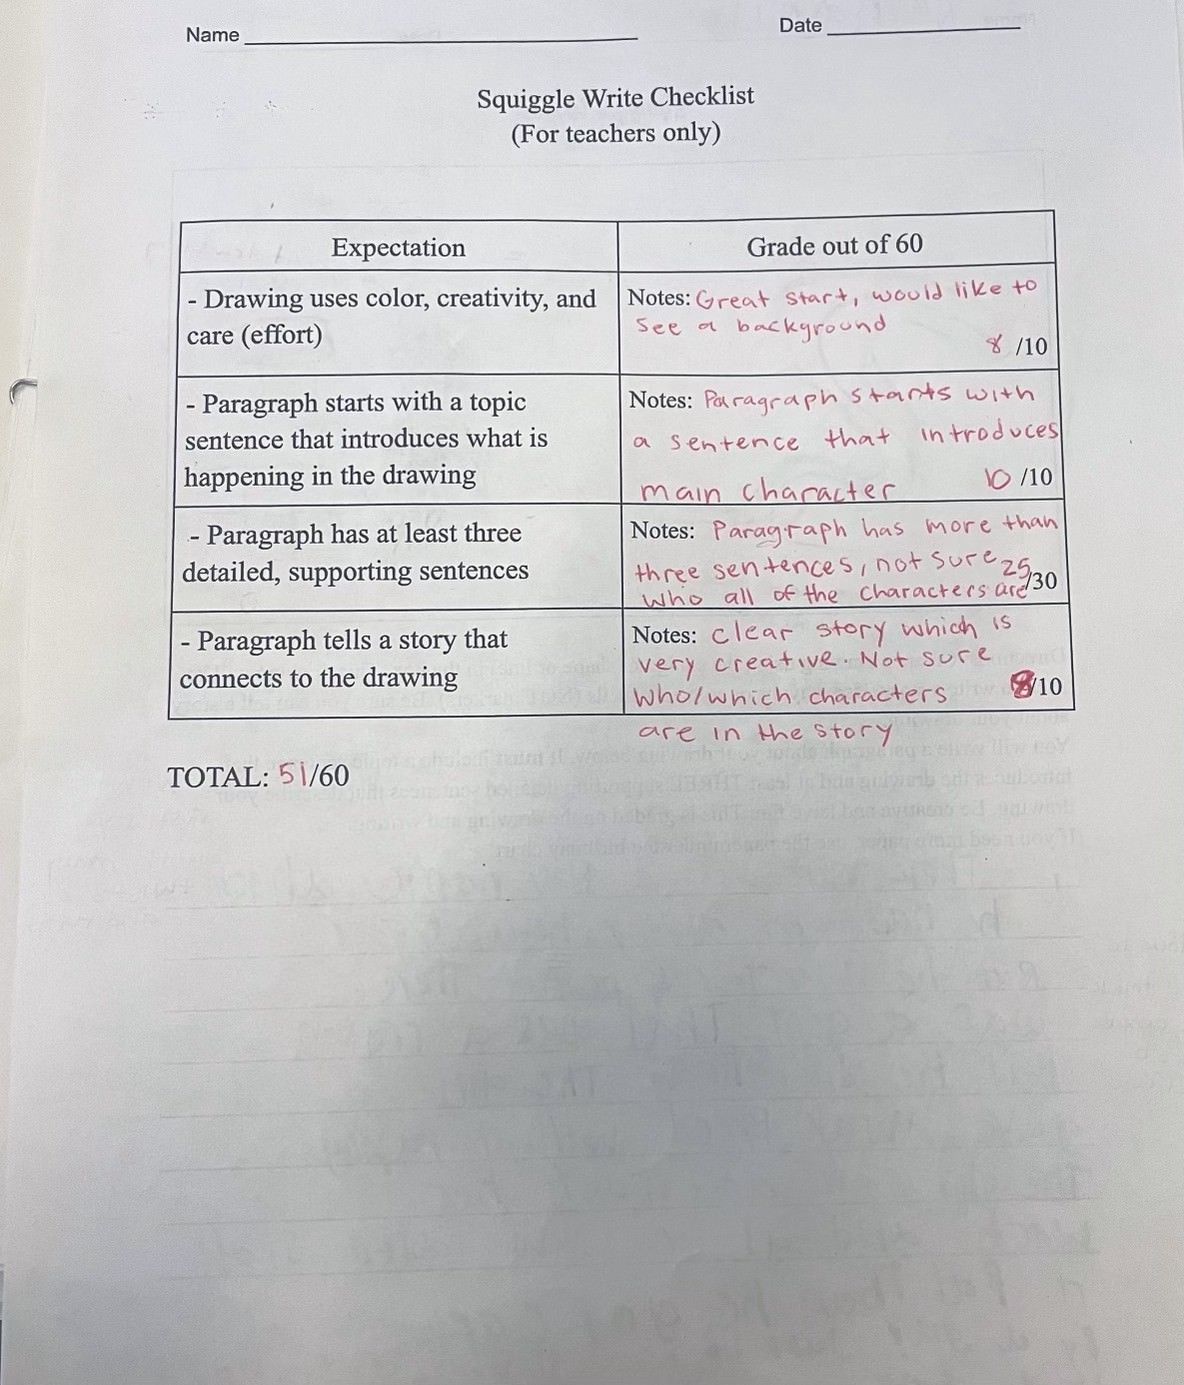 Name
Date
Squiggle Write Checklist
(For teachers only)
Expectation
Grade out of 60
- Drawing uses color, creativity, and
care (effort)
Notes: Great start, would like to
see a background
8 /10
- Paragraph starts with a topic
sentence that introduces what is
happening in the drawing
Notes: Paragraph starts with
a sentence that introduces
main character
10 /10
- Paragraph has at least three
detailed, supporting sentences
Notes: Paragraph has more than
three sentences, not sure
who all of the characters are
25/30
- Paragraph tells a story that
connects to the drawing
Notes: clear story which is
very creative. Not sure
who/which characters
are in the story
8/10
TOTAL: 51/60